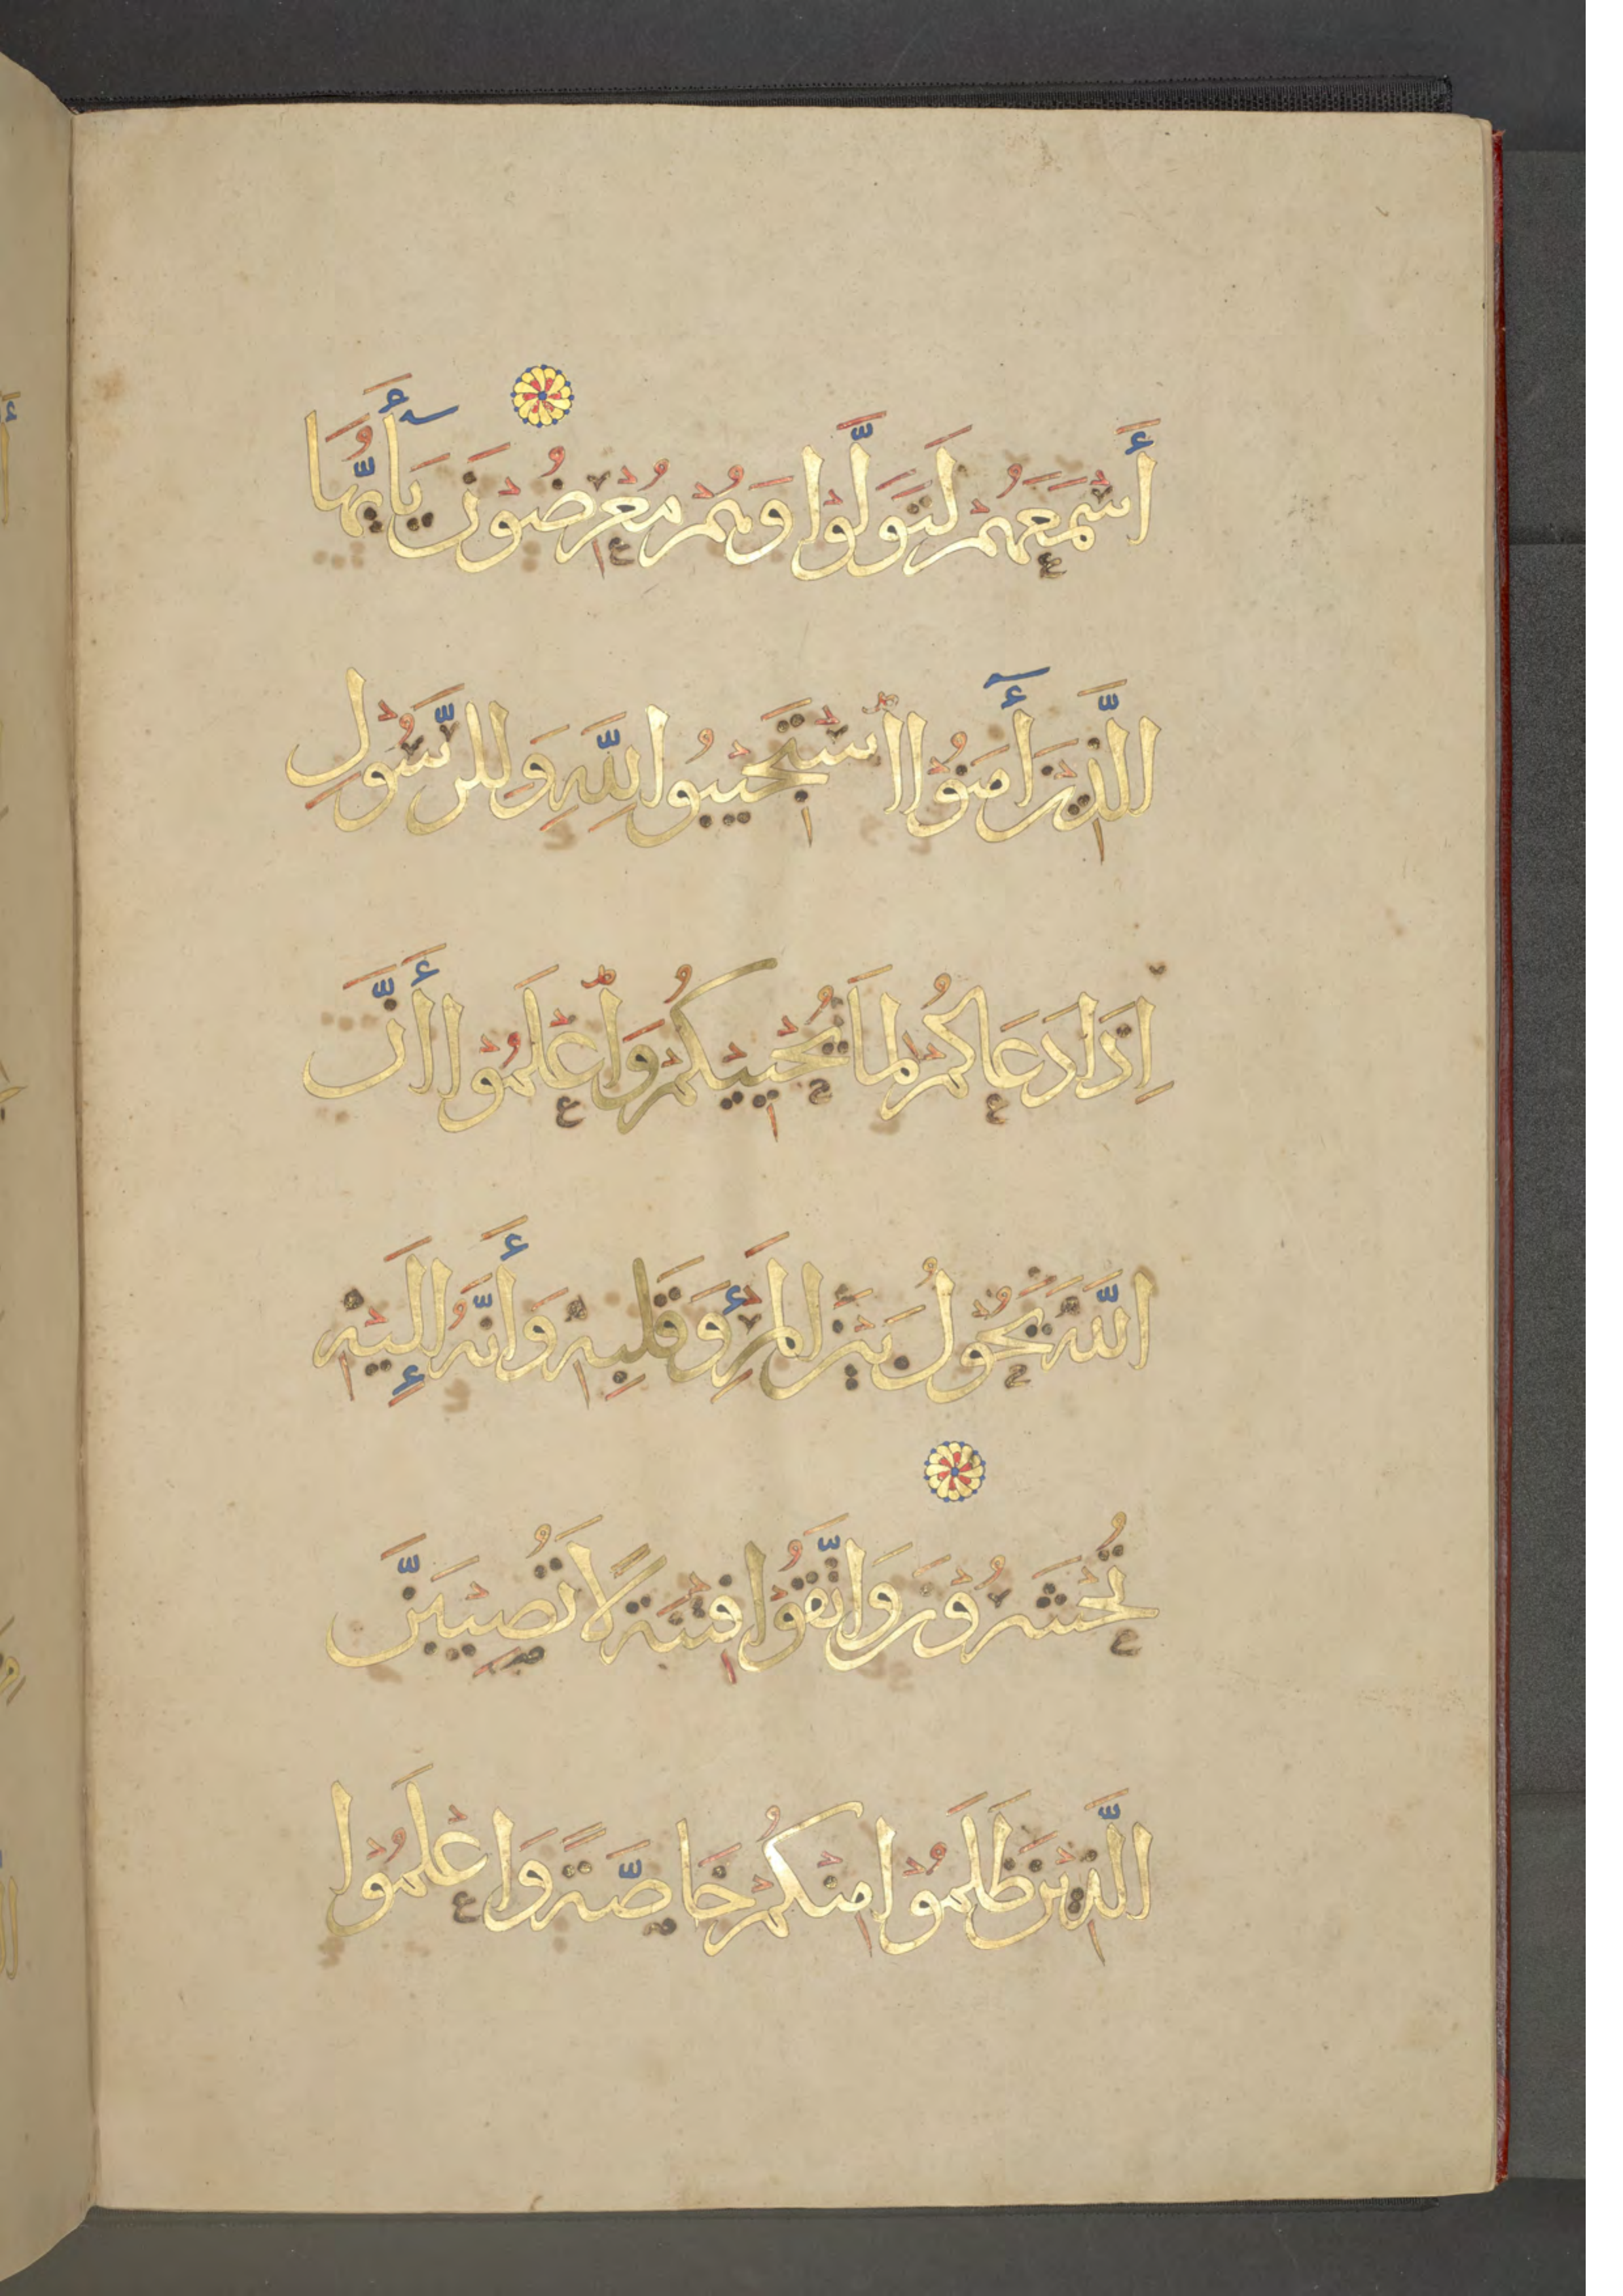 أَسْمَعَهُمْ لَتَوَلَّوْا وَهُمْ مُعْرِضُوْنَ يَآأَيُّهَا
الَّذِيْنَ أٓمَنُوْا اسْتَجِيْبُوا لِلَّهِ وَلِلرَّسُوْلِ
اِذَا دَعَاكُمْ لِمَا يُحْيِيْكُمْ وَاعْلَمُوْا أَنَّ
اللَّهَ يَحُوْلُ بَيْنَ الْمَرْءِ وَقَلْبِهِ وَأَنَّهُ إِلَيْهِ
تُحْشَرُوْنَ وَاتَّقُوْا فِتْنَةً لَا تُصِيْبَنَّ
الَّذِيْنَ ظَلَمُوْا مِنْكُمْ خَاصَّةً وَاعْلَمُوْا